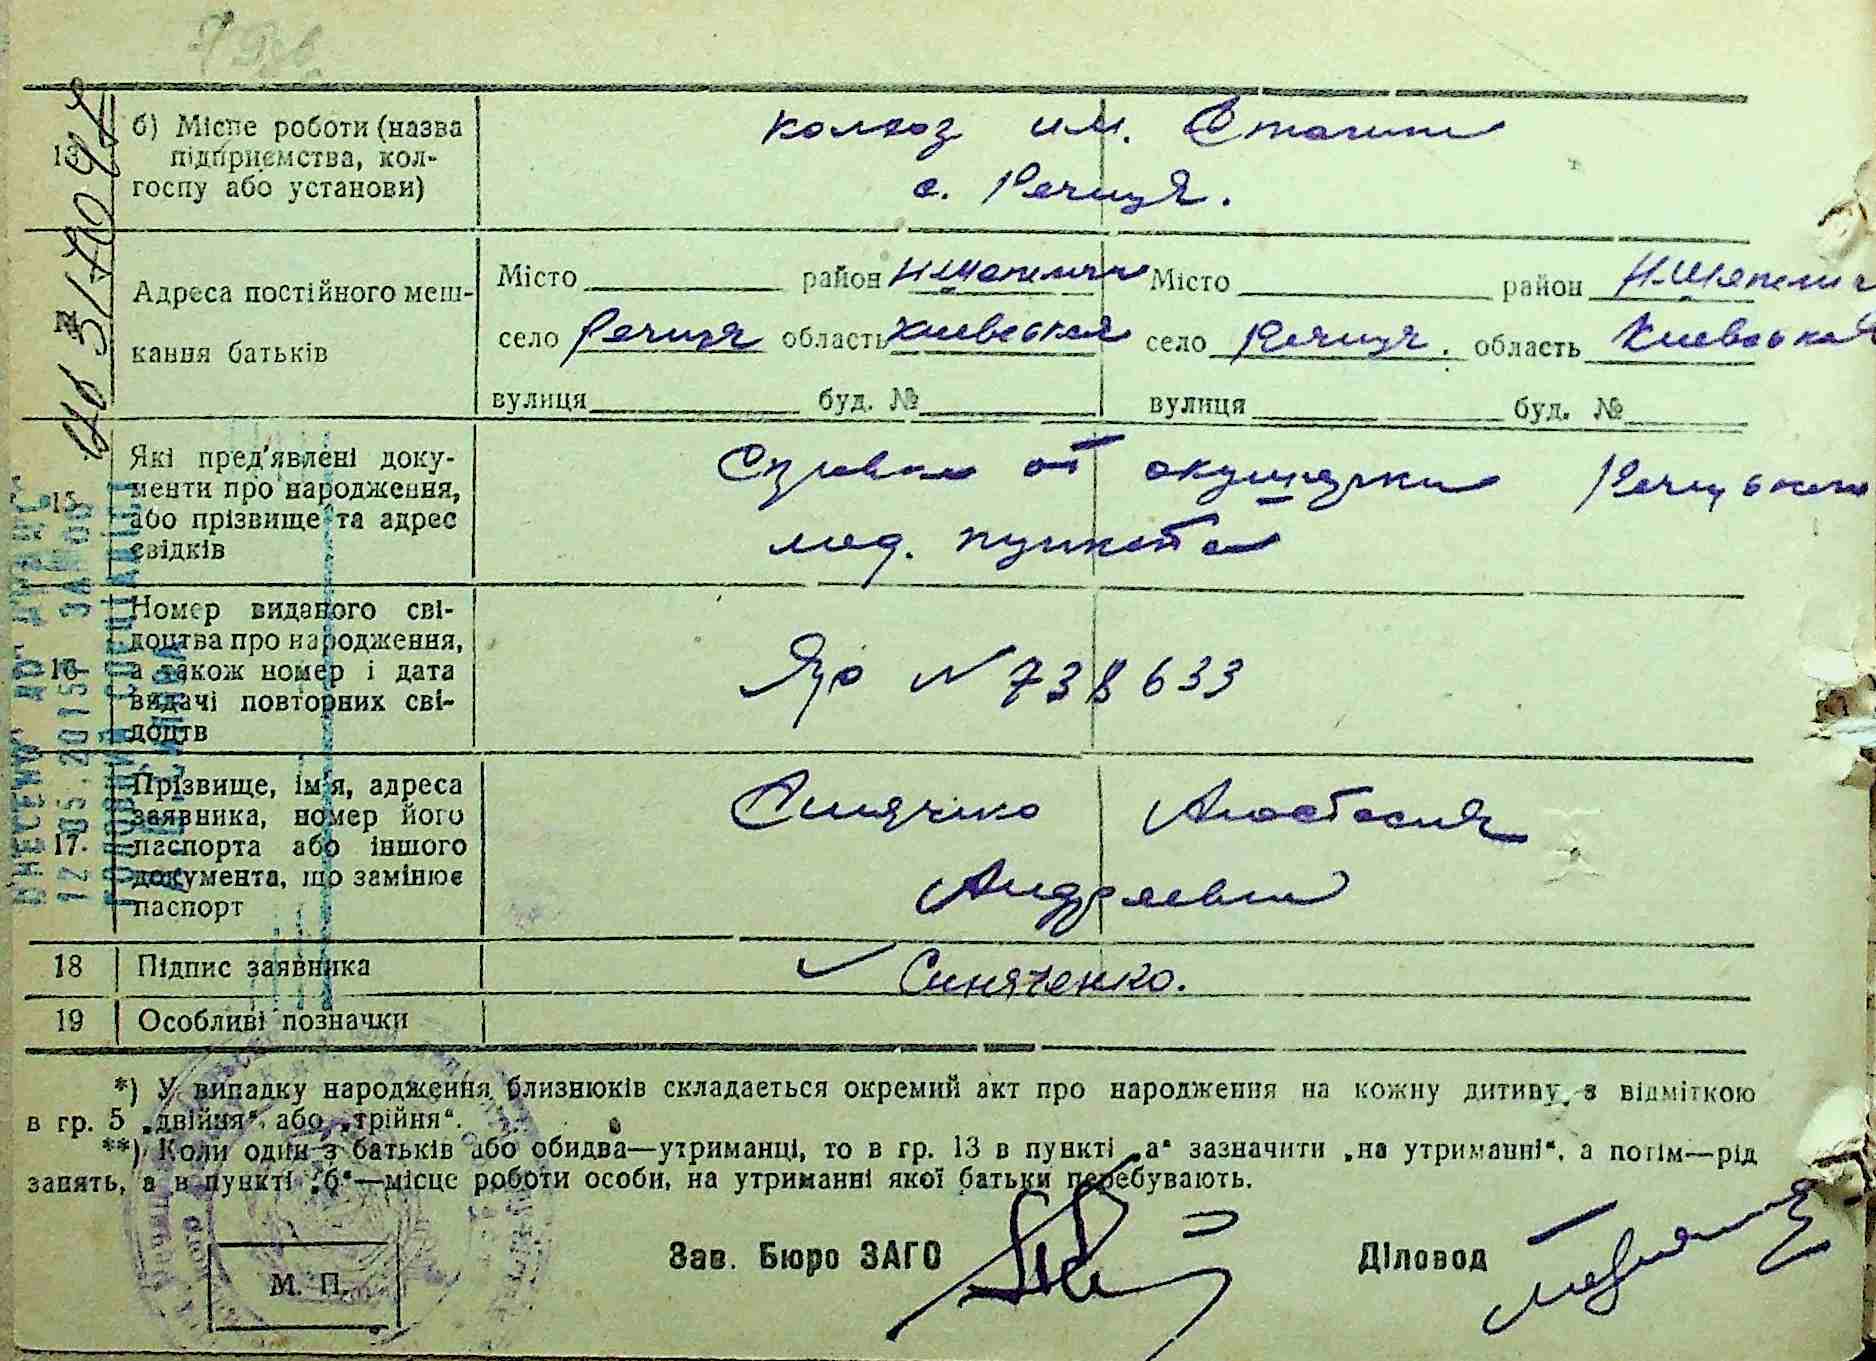 б) Місце роботи (назва
підприємства, кол-
госпу або установи)
колхоз им. Сталина
с. Речица.
Адреса постійного меш-
кання батьків
Місто район Н.Шепелич Місто район Н.Шепелич
село Речица область Киевская село Речица. область Киевская
вулиця буд. № вулиця буд. №
15
Які пред'явлені доку-
менти про народження,
або прізвище та адрес
свідків
Справка от акушерки Речицкого
мед. пункта
16
Номер виданого сві-
доцтва про народження,
а також номер і дата
видачі повторних сві-
доцтв
№ 738633
17.
Прізвище, ім'я, адреса
заявника, номер його
паспорта або іншого
документа, що замінює
паспорт
Анастасия
Андреевна
18 Підпис заявника Синяченко.
19 Особливі позначки
*) У випадку народження близнюків складається окремий акт про народження на кожну дитину з відміткою
в гр. 5 „двійня“ або „трійня“.
**) Коли один з батьків або обидва—утриманці, то в гр. 13 в пункті „а“ зазначити „на утриманні“, а потім—рід
занять, а в пункті „б“—місце роботи особи, на утриманні якої батьки перебувають.
Зав. Бюро ЗАГО Діловод
М. П.